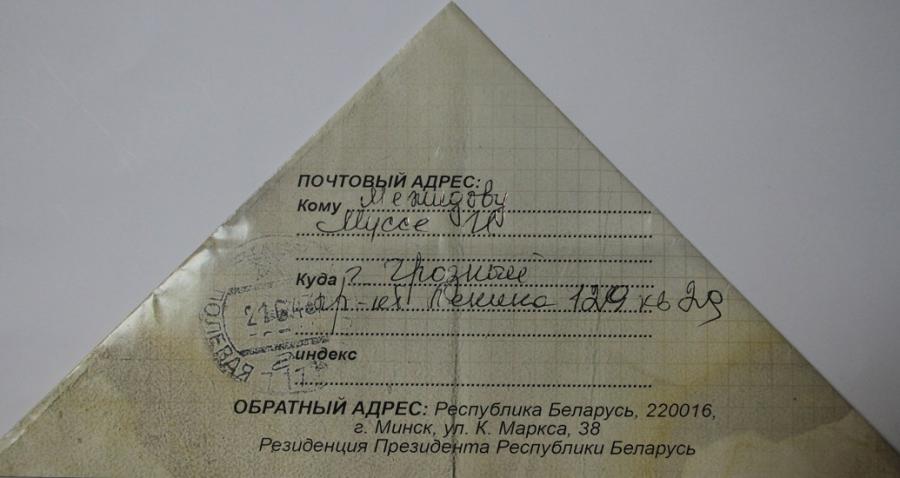 ПОЧТОВЫЙ АДРЕС:
Кому Межидову
Муссе
Куда г. Грозный
пр-кт Ленина 129 кв 29
индекс
ПОЛЕВАЯ
ОБРАТНЫЙ АДРЕС: Республика Беларусь, 220016,
г. Минск, ул. К. Маркса, 38
Резиденция Президента Республики Беларусь